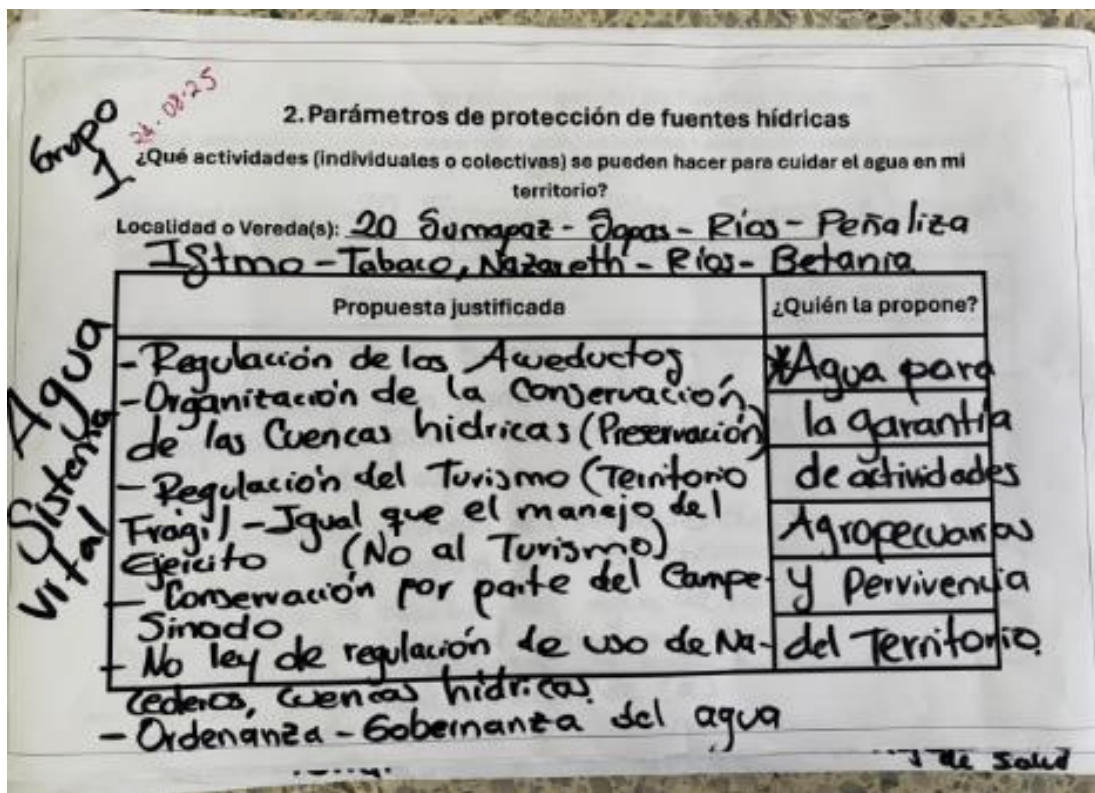 Grupo
1
21-08-25
2. Parámetros de protección de fuentes hídricas
¿Qué actividades (individuales o colectivas) se pueden hacer para cuidar el agua en mi
territorio?
Localidad o Vereda(s): 20 Sumapaz - Sopas - Ríos - Peñaliza
Istmo - Tabaco, Nazareth - Ríos - Betania
Propuesta justificada
¿Quién la propone?
Agua
Sistema
vital
- Regulación de los Acueductos
- Organización de la Conservación
de las Cuencas hidricas (Preservación)
- Regulación del Turismo (Territorio
Fragil) - Igual que el manejo del
Ejercito (No al Turismo)
- Conservación por parte del Campe-
Sinado
- No ley de regulación de uso de Na-
cederos, cuencas hídricas.
- Ordenanza - Gobernanza del agua
*Agua para
la garantía
de actividades
Agropecuarias
y Pervivencia
del Territorio.
de Salud